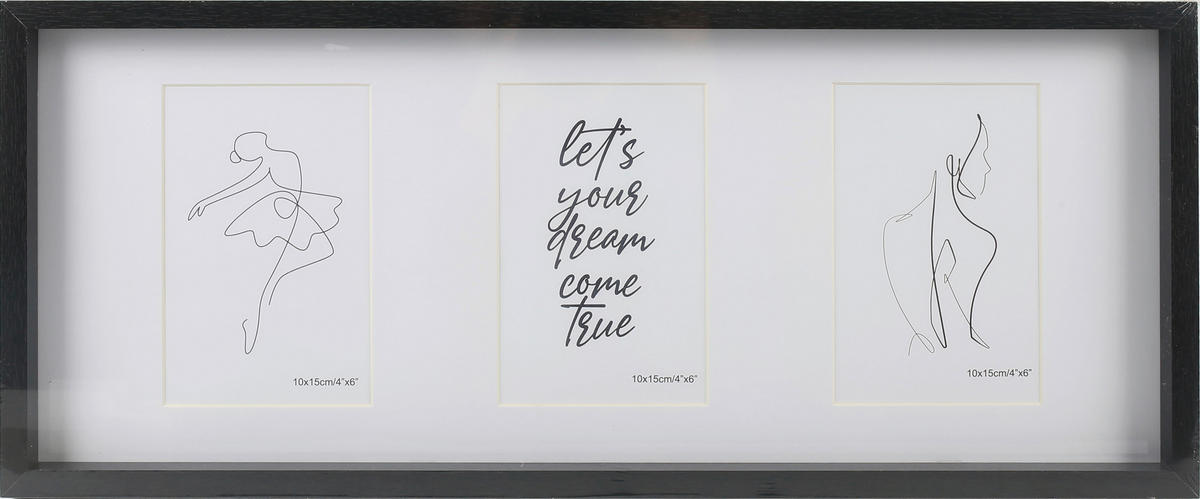 let's
your
dream
come
true
10x15cm/4"x6"
10x15cm/4"x6"
10x15cm/4"x6"